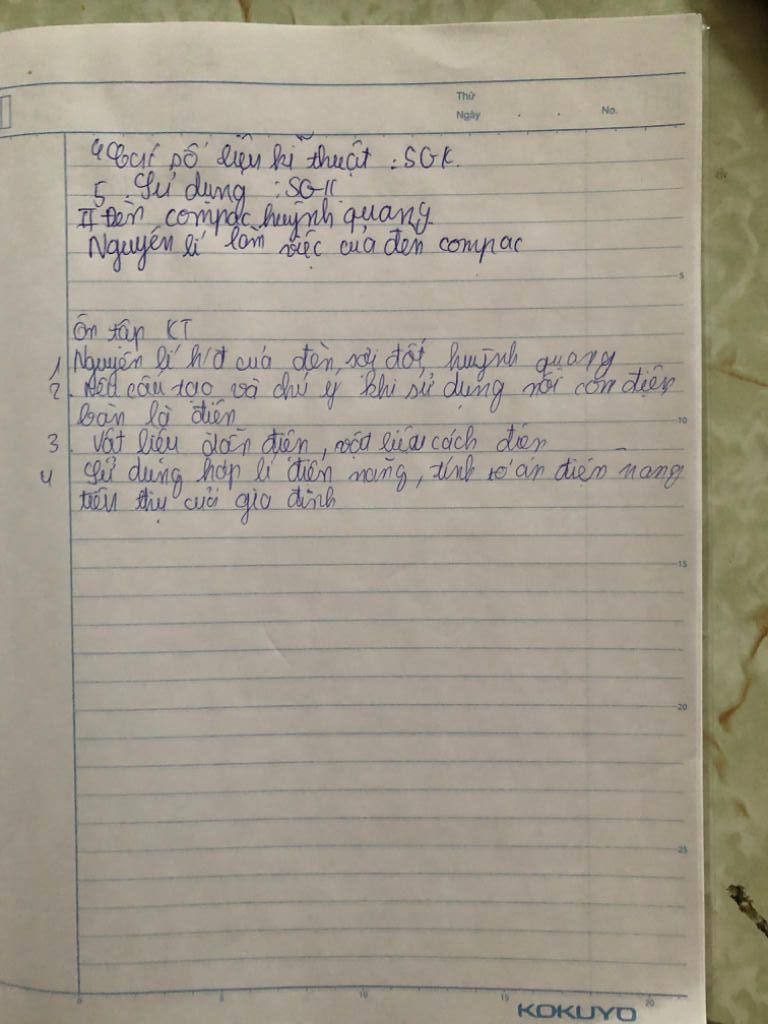 Thứ
Ngày . . No.
4 Các số liệu kĩ thuật : SGK.
5. Sử dụng : SGK
II Đèn compac huỳnh quang
Nguyên lí làm việc của đèn compac
5
Ôn tập KT
1 Nguyên lí h/đ của đèn, sợi đốt, huỳnh quang
2. Nêu cấu tạo và chú ý khi sử dụng nồi cơm điện
bàn là điện
10
3. Vật liệu dẫn điện, vật liệu cách điện
4 Sử dụng hợp lí điện năng, tính toán điện năng
tiêu thụ của gia đình
15
20
25
0 5 10 15 20
KOKUYO